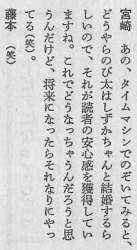 宮崎　あの、タイムマシンでのぞいてみると
どうやらのび太はしずかちゃんと結婚するら
しいので、それが読者の安心感を獲得してい
ますね。これでどうなっちゃうんだろうと思
うんだけど、将来になったらそれなりにやっ
てる（笑）。
藤本　（笑）